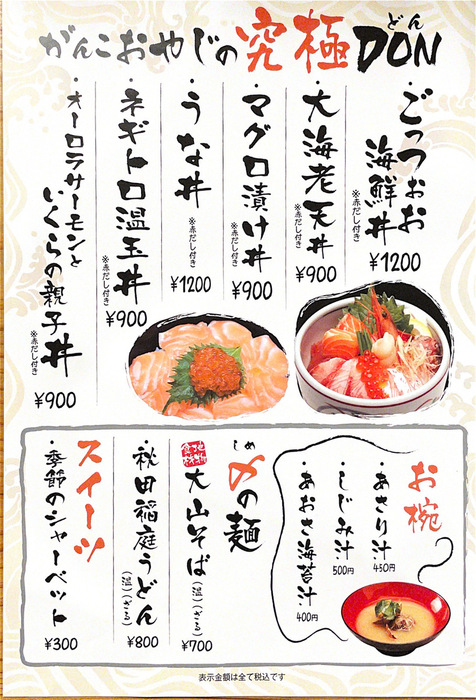 がんこおやじの究極DON
どん
・ごっつぉお
海鮮丼
※赤だし付き
¥1200
・大海老天丼
※赤だし付き
¥900
・マグロ漬け丼
※赤だし付き
¥900
・うな丼
※赤だし付き
¥1200
・ネギトロ温玉丼
※赤だし付き
¥900
・オーロラサーモンと
いくらの親子丼
※赤だし付き
¥900
お椀
・あさり汁
450円
・しじみ汁
500円
・あおさ海苔汁
400円
しめ
〆の麺
・大山そば
(温)(ざる)
¥700
・秋田稲庭うどん
(温)(ざる)
¥800
スイーツ
・季節のシャーベット
¥300
表示金額は全て税込です